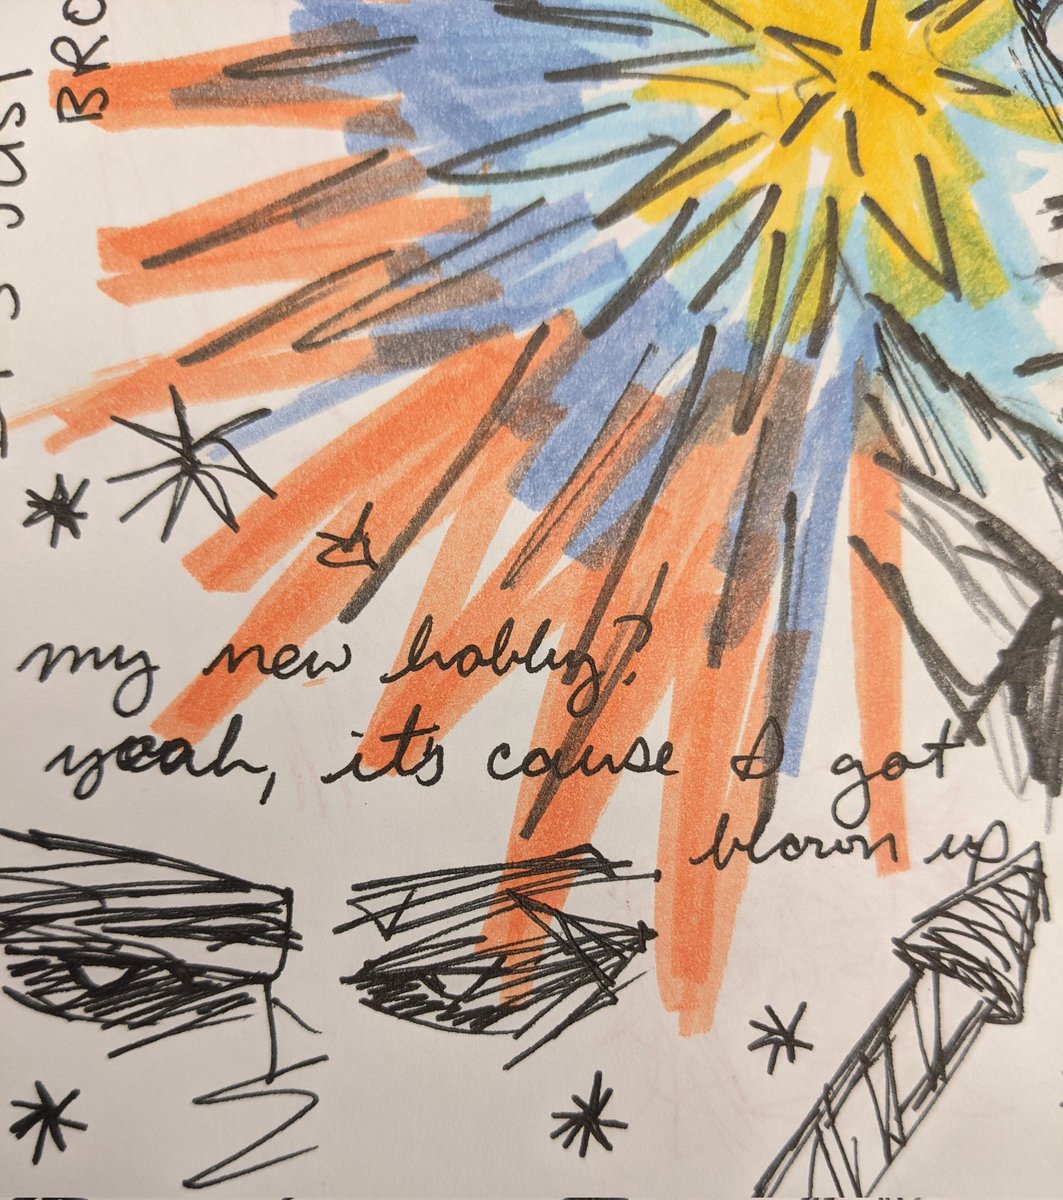 BRO
IT'S JUST
my new hobby?
yeah, it's cause I got
blown up